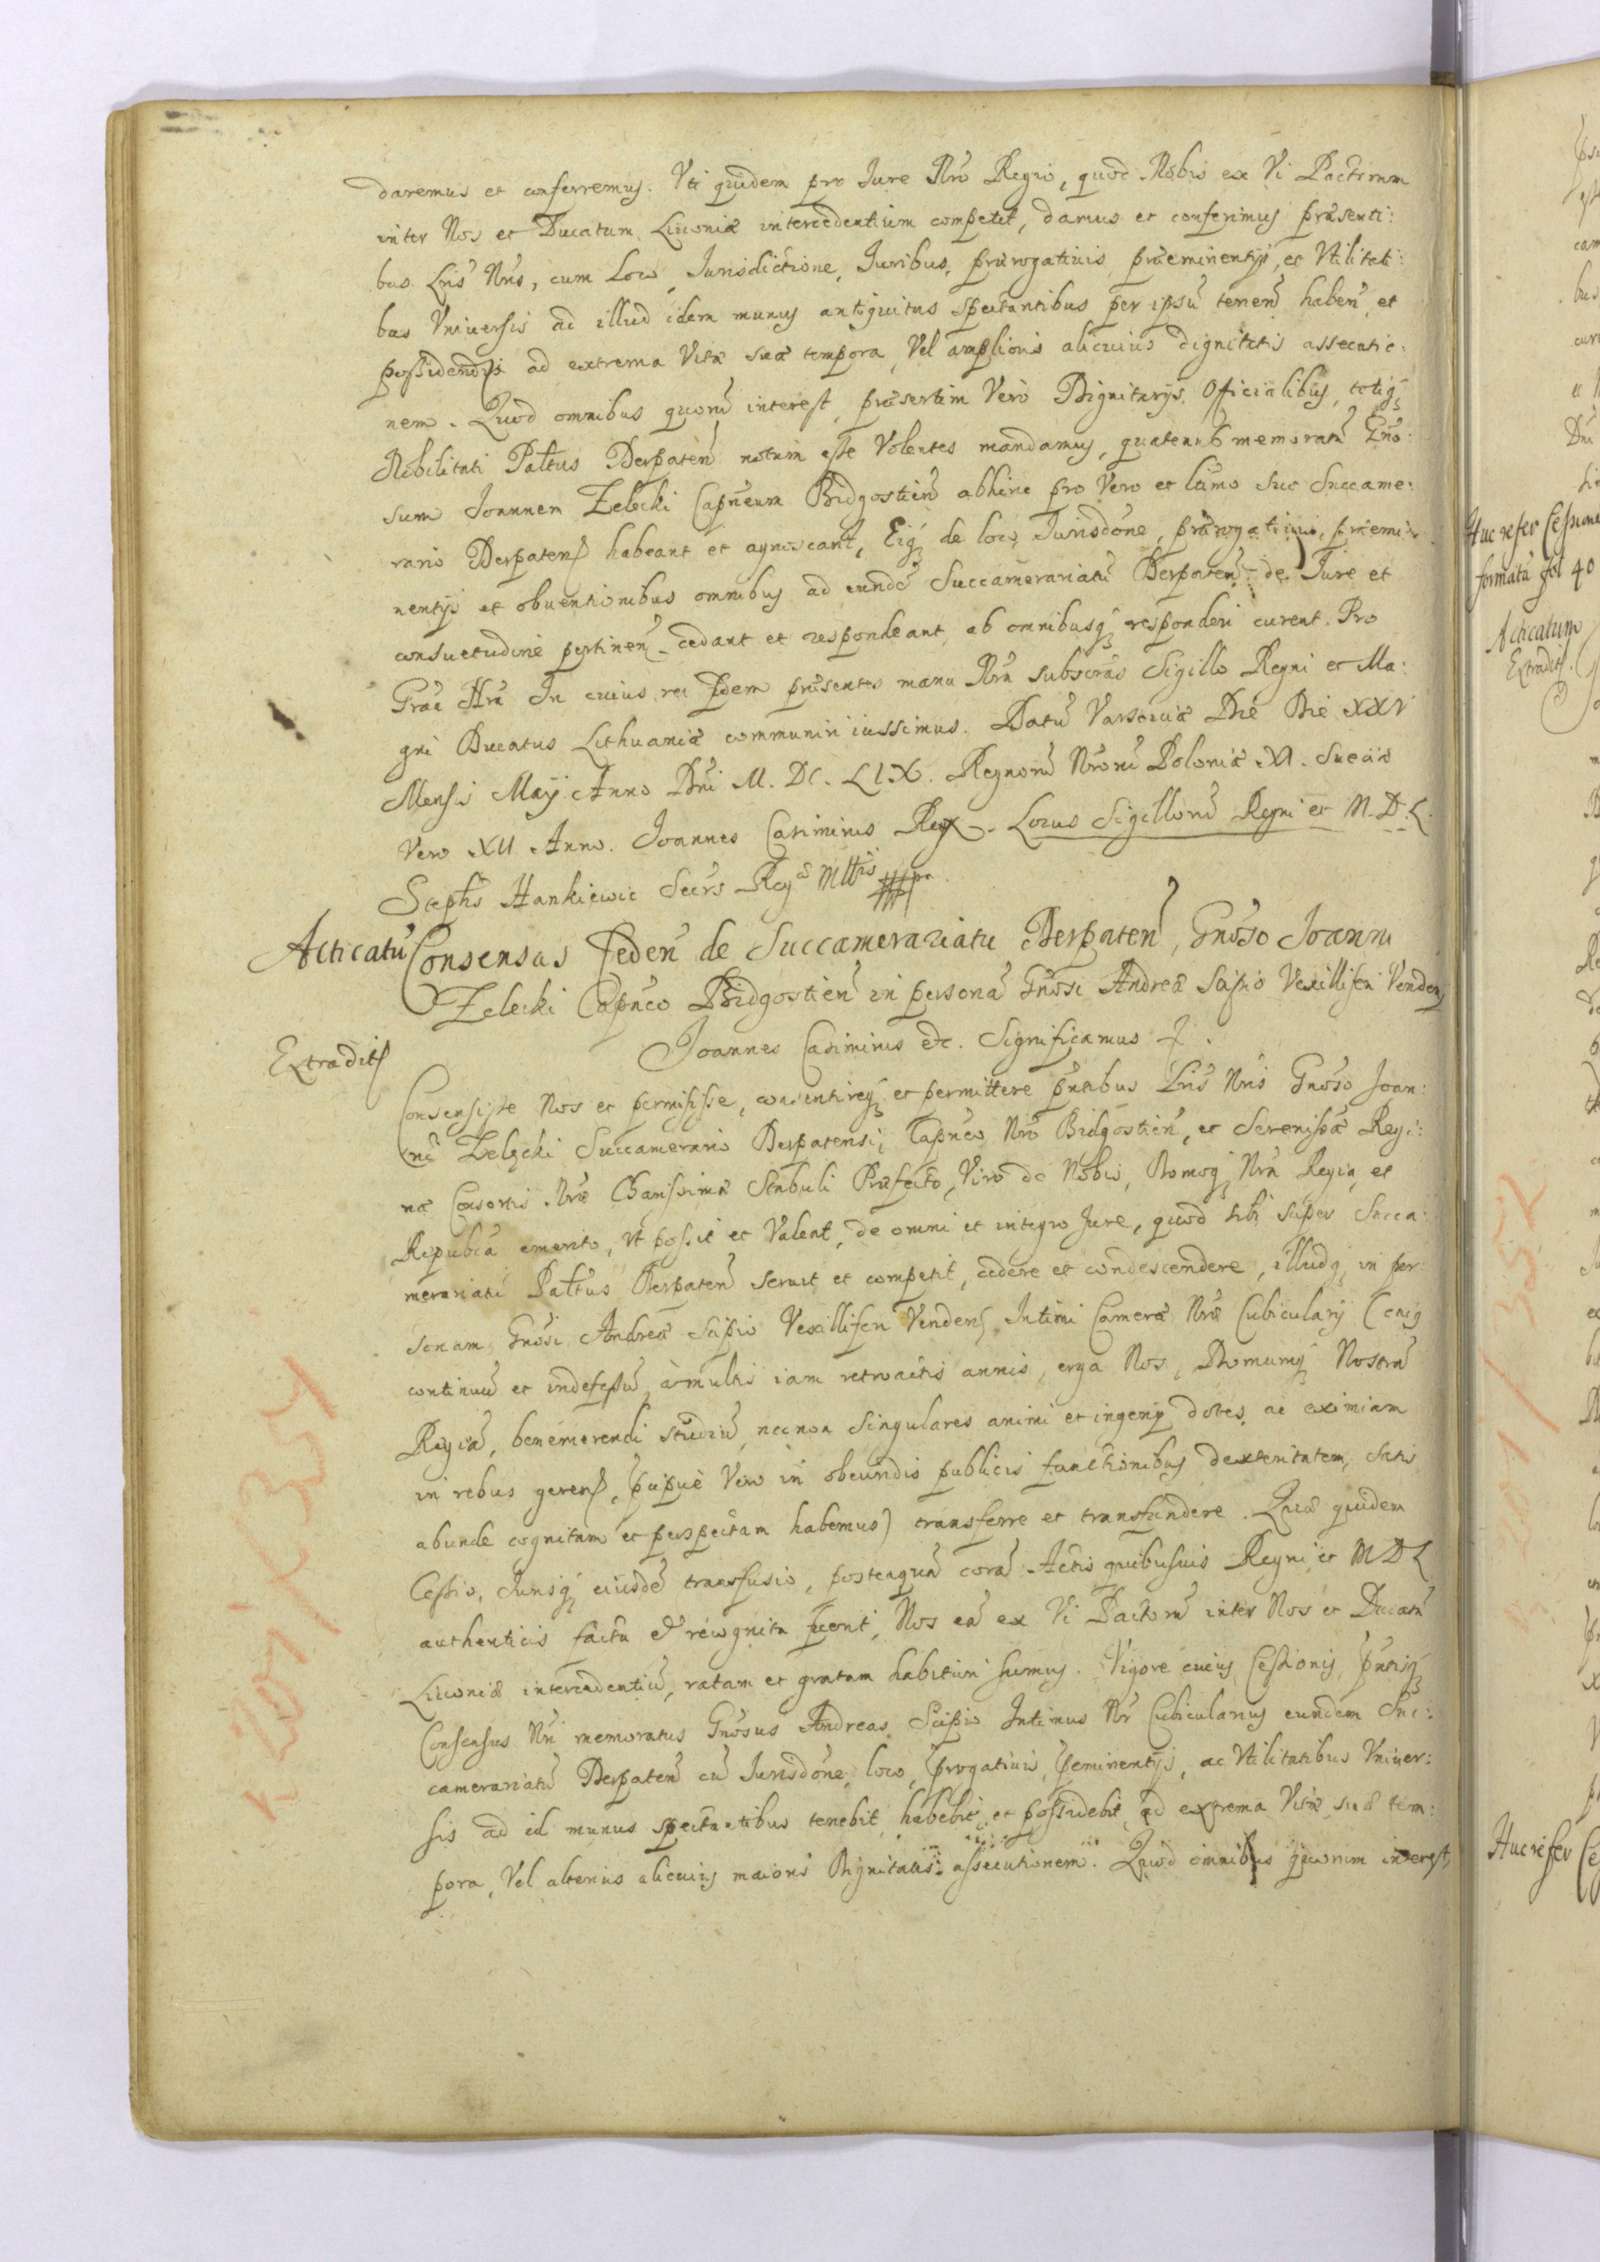 daremus et conferremus. Vti quidem pro Iure Nrõ Regio, quod Nobis ex Vi Pactorum
inter Nos et Ducatum Liuoniæ intercedentium competit, damus et conferimus præsenti:
bus Lris Nris, cum Loco, Jurisdictione, Juribus, prærogatiuis præeminentijs, et Vtilitati:
bus Vniuersis ad illud idem munus antiquitus spectantibus per ipsũ tenen̄ haben̄ et
possidendis ad extrema Vitæ suæ tempora, Vel amplioris alicuius dignitatis assecutio:
nem. Quod omnibus quorũ interest, præsertim Vero Dignitarijs, Officialibus, totiq₃
Nobilitati Palt̃us Derpaten̄ notum esse Volentes mandamus, quatenus memoratũ Gño:
sum Joannem Zelecki Capñeum Bidgostien̄ abhinc pro Vero et ltimo suo Succame:
rario Derpaten̄ habeant et agnoscant, Eiq₃ de loco Jurisdõne, prærogatiuis, præemi:
nentijs et obuentionibus omnibus ad eundẽ Succamerariatũ Derpaten̄ de Iure et
consuetudine pertinen̄ cedant et respondeant, ab omnibusq₃ responderi curent. Pro
Grãa Nrã In cuius rei fidem præsentes manu Nrã subscrãs Sigillo Regni et Ma:
gni Ducatus Lithuaniæ communiri iussimus. Datũ Varsouiæ Die Die XXV
Mensis Maij Anno Dñi M. DC. LIX. Regnorũ Nrõrũ Poloniæ XI. Sueciæ
Vero XII Anno. Joannes Casimirus Rex. Locus Sigillorũ Regni et M. D. L.
Stephs Hankiewic Secrs Reg. Mttis
Acticatũ Consensus Ceden̄ de Succamerariatu Derpaten̄, Gnõso Joanni
Zelecki Capñeo Bidgostien̄ in personã Gnõsi Andreæ Scipio Vexilliferi Venden̄
Joannes Casimirus etc. Significamus
Extradit
Consensisse Nos et permisisse, consentireq₃ et permittere pñtibus Lris Nris Gnõso Joan:
ni Zelęcki Succamerario Derpatensi, Capñeo Nrõ Bidgostien̄, et Serenissæ Regi:
næ Consortis Nræ Charissimæ Stabuli Præfecto, Viro de Nobis, Domoq₃ Nrã Regia, et
Republicã emerito, vt possit et Valeat, de omni et integro Jure, quod sibi super Succa:
merariatũ Palt̃us Derpaten̄ seruit et competit, cedere et condescendere, illudq₃ in per:
sonam Gnõsi Andreæ Scipio Vexilliferi Venden̄, Intimi Cameræ Nræ Cubicularij (cuius
continuũ et indefessũ à multis iam retroactis annis, erga Nos, Domumq₃ Nostrã
Regiã, benemerendi studiũ, necnon singulares animi et ingenij dotes, ac eximiam
in rebus geren̄, pcipuè Vero in obeundis publicis functionibus dexteritatem, satis
abunde cognitam et perspectam habemus) transferre et transfundere. Quæ quidem
Cessio, Jurisq₃ eiusdẽ transfusio, posteaquã corã Actis quibusuis Regni et M D L
authenticis facta et recognita fuerit, Nos eã ex Vi Pactorũ inter Nos et Ducatũ
Liuoniæ intercedentiũ, ratam et gratam habituri sumus. Vigore cuius Cessionis pñtisq₃
Consensus Nri memoratus Gnõsus Andreas Scipio Intimus Nr Cubicularius eundem Suc:
camerariatũ Derpaten̄ cũ Jurisdõne, loco, prrogatiuis, peminentijs, ac Vtilitatibus Vniuer:
sis ad id munus spectantibus tenebit habebit et possidebit ad extrema Vitæ suæ tem:
pora, Vel alterius alicuius maioris Dignitatis assecutionem. Quod omnibus quorum interest
Huc refer Cessione
formatũ fol 40
Acticatum
Extradit
Huc refer